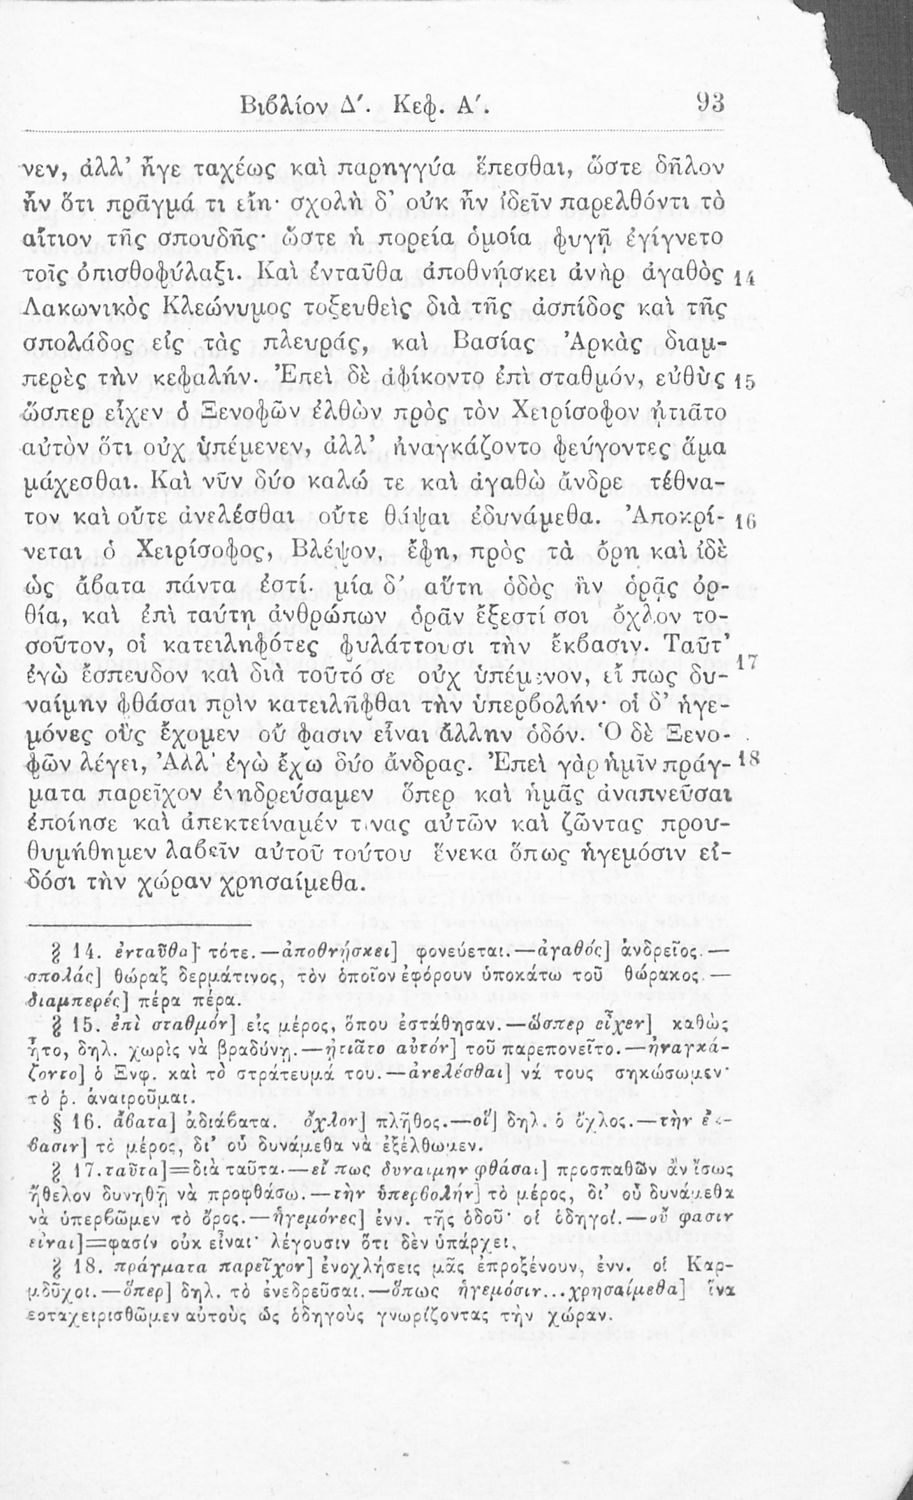 Βιβλίον Δ΄. Κεφ. Α΄. 93
νεν, ἀλλ’ ἦγε ταχέως καὶ παρηγγύα ἕπεσθαι, ὥστε δῆλον
ἦν ὅτι πρᾶγμά τι εἴη· σχολὴ δ’ οὐκ ἦν ἰδεῖν παρελθόντι τὸ
αἴτιον τῆς σπουδῆς· ὥστε ἡ πορεία ὁμοία φυγῇ ἐγίγνετο
τοῖς ὀπισθοφύλαξι. Καὶ ἐνταῦθα ἀποθνήσκει ἀνὴρ ἀγαθὸς 14
Λακωνικὸς Κλεώνυμος τοξευθεὶς διὰ τῆς ἀσπίδος καὶ τῆς
σπολάδος εἰς τὰς πλευράς, καὶ Βασίας Ἀρκὰς διαμ-
περὲς τὴν κεφαλήν. Ἐπεὶ δὲ ἀφίκοντο ἐπὶ σταθμόν, εὐθὺς 15
ὥσπερ εἶχεν ὁ Ξενοφῶν ἐλθὼν πρὸς τὸν Χειρίσοφον ᾐτιᾶτο
αὐτὸν ὅτι οὐχ ὑπέμενεν, ἀλλ’ ἠναγκάζοντο φεύγοντες ἅμα
μάχεσθαι. Καὶ νῦν δύο καλώ τε καὶ ἀγαθὼ ἄνδρε τέθνα-
τον καὶ οὔτε ἀνελέσθαι οὔτε θάψαι ἐδυνάμεθα. Ἀποκρί- 16
νεται ὁ Χειρίσοφος, Βλέψον, ἔφη, πρὸς τὰ ὄρη καὶ ἰδὲ
ὡς ἄβατα πάντα ἐστί. μία δ’ αὕτη ὁδὸς ἣν ὁρᾷς ὀρ-
θία, καὶ ἐπὶ ταύτῃ ἀνθρώπων ὁρᾶν ἔξεστί σοι ὄχλον το-
σοῦτον, οἳ κατειληφότες φυλάττουσι τὴν ἔκβασιν. Ταῦτ’
ἐγὼ ἔσπευδον καὶ διὰ τοῦτό σε οὐχ ὑπέμενον, εἴ πως δυ- 17
ναίμην φθάσαι πρὶν κατειλῆφθαι τὴν ὑπερβολήν· οἱ δ’ ἡγε-
μόνες οὓς ἔχομεν οὔ φασιν εἶναι ἄλλην ὁδόν. Ὁ δὲ Ξενο-
φῶν λέγει, Ἀλλ’ ἐγὼ ἔχω δύο ἄνδρας. Ἐπεὶ γὰρ ἡμῖν πράγ- 18
ματα παρεῖχον ἐνηδρεύσαμεν ὅπερ καὶ ἡμᾶς ἀναπνεῦσαι
ἐποίησε καὶ ἀπεκτείναμέν τινας αὐτῶν καὶ ζῶντας πρου-
θυμήθημεν λαβεῖν αὐτοῦ τούτου ἕνεκα ὅπως ἡγεμόσιν εἰ-
δόσι τὴν χώραν χρησαίμεθα.
§ 14. ἐνταῦθα] τότε.—ἀποθνήσκει] φονεύεται.—ἀγαθός] ἀνδρεῖος.—
σπολάς] θώραξ δερμάτινος, τὸν ὁποῖον ἐφόρουν ὑποκάτω τοῦ θώρακος.—
διαμπερές] πέρα πέρα.
§ 15. ἐπὶ σταθμόν] εἰς μέρος, ὅπου ἐστάθησαν.—ὥσπερ εἶχεν] καθὼς
ἦτο, δηλ. χωρὶς νὰ βραδύνῃ.—ᾐτιᾶτο αὐτόν] τοῦ παρεπονεῖτο.—ἠναγκά-
ζοντο] ὁ Ξνφ. καὶ τὸ στράτευμά του.—ἀνελέσθαι] νά τους σηκώσωμεν·
τὸ ῥ. ἀναιροῦμαι.
§ 16. ἄβατα] ἀδιάβατα. ὄχλον] πλῆθος.—οἵ] δηλ. ὁ ὄχλος.—τὴν ἔκ-
βασιν] τὸ μέρος, δι’ οὗ δυνάμεθα νὰ ἐξέλθωμεν.
§ 17. ταῦτα]=διὰ ταῦτα.—εἴ πως δυναιμην φθάσαι] προσπαθῶν ἂν ἴσως
ἤθελον δυνηθῆ νὰ προφθάσω.—τὴν ὑπερβολήν] τὸ μέρος, δι’ οὗ δυνάμεθα
νὰ ὑπερβῶμεν τὸ ὄρος.—ἡγεμόνες] ἐνν. τῆς ὁδοῦ· οἱ ὁδηγοί.—οὔ φασιν
εἶναι]=φασίν οὐκ εἶναι· λέγουσιν ὅτι δὲν ὑπάρχει.
§ 18. πράγματα παρεῖχον] ἐνοχλήσεις μᾶς ἐπροξένουν, ἐνν. οἱ Καρ-
μδοῦχοι.—ὅπερ] δηλ. τὸ ἐνεδρεῦσαι.—ὅπως ἡγεμόσιν...χρησαίμεθα] ἵνα
εοταχειρισθῶμεν αὐτοὺς ὡς ὁδηγοὺς γνωρίζοντας τὴν χώραν.